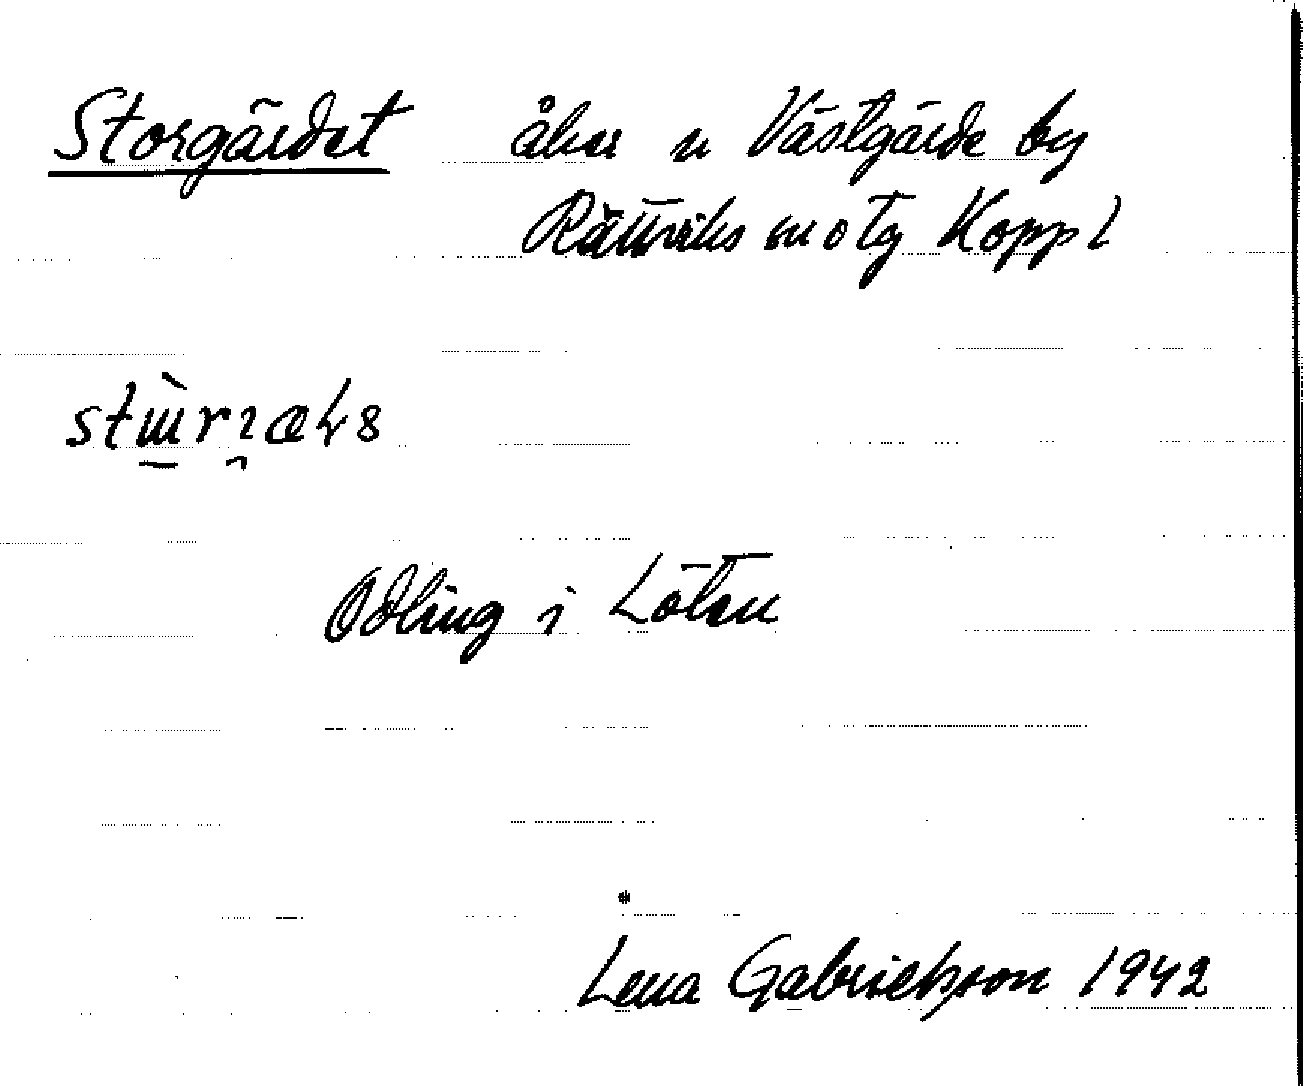 Storgärdet åker n Västgärde by
Rättviks sn o tg Kopp l
Odling i Löten
Lena Gabrielsson 1942